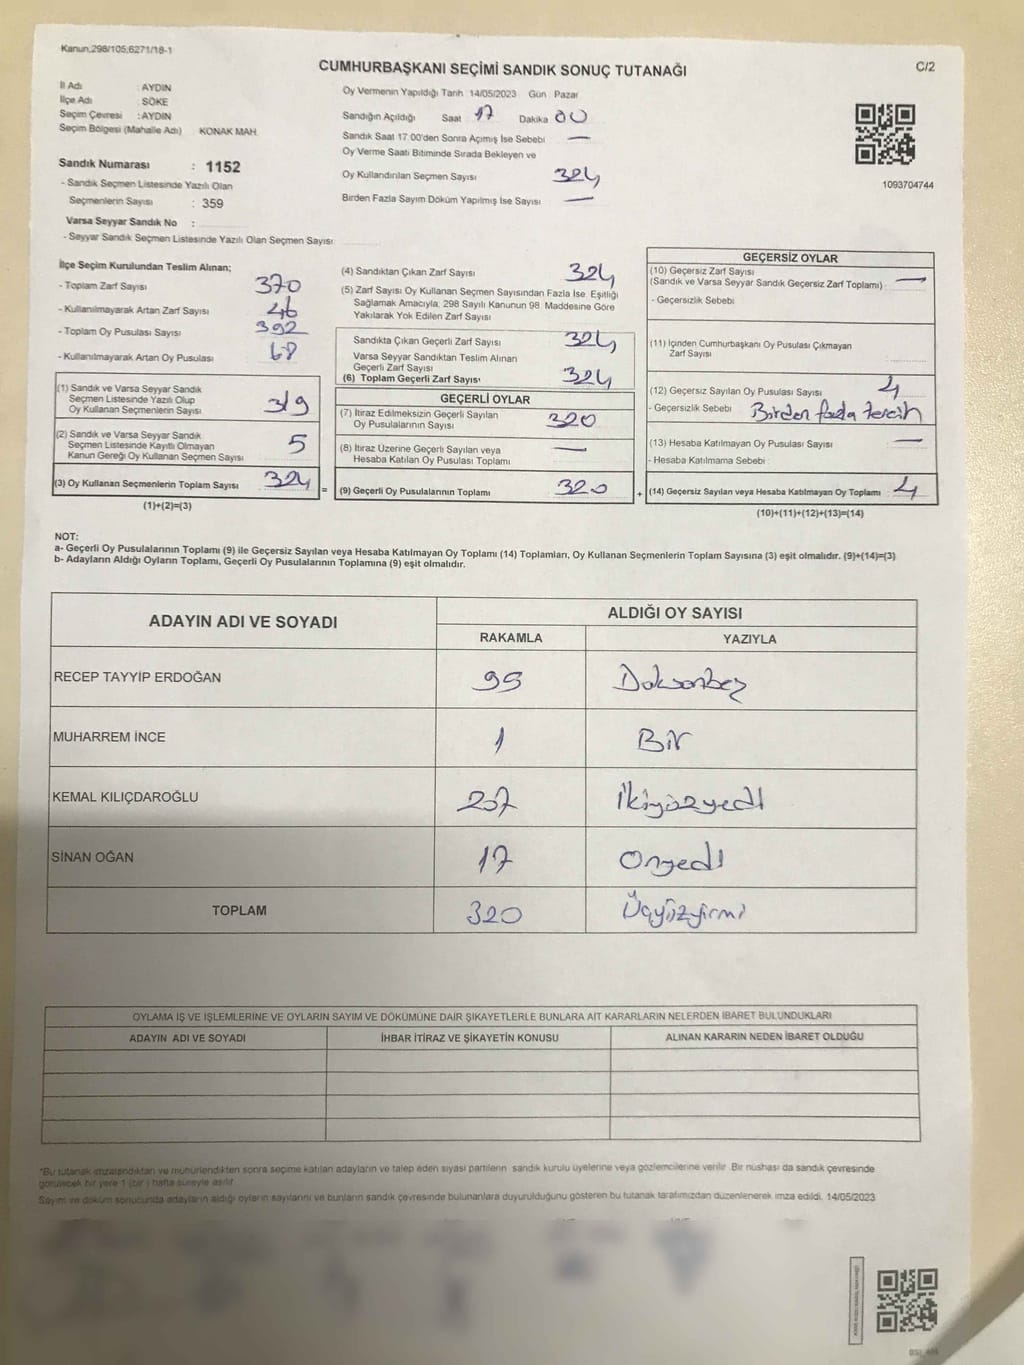 Kanun,298/105;6271/18-1
CUMHURBAŞKANI SEÇİMİ SANDIK SONUÇ TUTANAĞI
C/2
İl Adı : AYDIN
İlçe Adı : SÖKE
Seçim Çevresi : AYDIN
Seçim Bölgesi (Mahalle Adı) KONAK MAH.
Sandık Numarası : 1152
- Sandık Seçmen Listesinde Yazılı Olan
Seçmenlerin Sayısı : 359
Varsa Seyyar Sandık No :
- Seyyar Sandık Seçmen Listesinde Yazılı Olan Seçmen Sayısı:
Oy Vermenin Yapıldığı Tarih 14/05/2023 Gün : Pazar
Sandığın Açıldığı Saat 17 Dakika 00
Sandık Saat 17.00'den Sonra Açımış İse Sebebi —
Oy Verme Saati Bitiminde Sırada Bekleyen ve
Oy Kullandırılan Seçmen Sayısı 324
Birden Fazla Sayım Döküm Yapılmış İse Sayısı —
1093704744
İlçe Seçim Kurulundan Teslim Alınan;
- Toplam Zarf Sayısı 370
- Kullanılmayarak Artan Zarf Sayısı 46
- Toplam Oy Pusulası Sayısı 392
- Kullanılmayarak Artan Oy Pusulası 68
(1) Sandık ve Varsa Seyyar Sandık
Seçmen Listesinde Yazılı Olup
Oy Kullanan Seçmenlerin Sayısı 319
(2) Sandık ve Varsa Seyyar Sandık
Seçmen Listesinde Kayıtlı Olmayan
Kanun Gereği Oy Kullanan Seçmen Sayısı 5
(3) Oy Kullanan Seçmenlerin Toplam Sayısı 324
(1)+(2)=(3)
(4) Sandıktan Çıkan Zarf Sayısı 324
(5) Zarf Sayısı Oy Kullanan Seçmen Sayısından Fazla İse, Eşitliği
Sağlamak Amacıyla, 298 Sayılı Kanunun 98. Maddesine Göre
Yakılarak Yok Edilen Zarf Sayısı
Sandıkta Çıkan Geçerli Zarf Sayısı 324
Varsa Seyyar Sandıktan Teslim Alınan
Geçerli Zarf Sayısı
(6) Toplam Geçerli Zarf Sayısı 324
GEÇERLİ OYLAR
(7) İtiraz Edilmeksizin Geçerli Sayılan
Oy Pusulalarının Sayısı 320
(8) İtiraz Üzerine Geçerli Sayılan veya
Hesaba Katılan Oy Pusulası Toplamı —
= (9) Geçerli Oy Pusulalarının Toplamı 320 +
GEÇERSİZ OYLAR
(10) Geçersiz Zarf Sayısı
(Sandık ve Varsa Seyyar Sandık Geçersiz Zarf Toplamı) —
- Geçersizlik Sebebi
(11) İçinden Cumhurbaşkanı Oy Pusulası Çıkmayan
Zarf Sayısı
(12) Geçersiz Sayılan Oy Pusulası Sayısı 4
- Geçersizlik Sebebi Birden fazla tercih
(13) Hesaba Katılmayan Oy Pusulası Sayısı —
- Hesaba Katılmama Sebebi
(14) Geçersiz Sayılan veya Hesaba Katılmayan Oy Toplamı 4
(10)+(11)+(12)+(13)=(14)
NOT:
a- Geçerli Oy Pusulalarının Toplamı (9) ile Geçersiz Sayılan veya Hesaba Katılmayan Oy Toplamı (14) Toplamları, Oy Kullanan Seçmenlerin Toplam Sayısına (3) eşit olmalıdır. (9)+(14)=(3)
b- Adayların Aldığı Oyların Toplamı, Geçerli Oy Pusulalarının Toplamına (9) eşit olmalıdır.
ADAYIN ADI VE SOYADI
ALDIĞI OY SAYISI
RAKAMLA YAZIYLA
RECEP TAYYİP ERDOĞAN 95 Doksanbeş
MUHARREM İNCE 1 Bir
KEMAL KILIÇDAROĞLU 207 İkiyüzyedi
SİNAN OĞAN 17 Onyedi
TOPLAM 320 Üçyüzyirmi
OYLAMA İŞ VE İŞLEMLERİNE VE OYLARIN SAYIM VE DÖKÜMÜNE DAİR ŞİKAYETLERLE BUNLARA AİT KARARLARIN NELERDEN İBARET BULUNDUKLARI
ADAYIN ADI VE SOYADI İHBAR İTİRAZ VE ŞİKAYETİN KONUSU ALINAN KARARIN NEDEN İBARET OLDUĞU
*Bu tutanak imzalandıktan ve mühürlendikten sonra seçime katılan adayların ve talep eden siyasi partilerin sandık kurulu üyelerine veya gözlemcilerine verilir. Bir nüshası da sandık çevresinde
görülecek bir yere 1 (bir) hafta süreyle asılır.
Sayım ve döküm sonucunda adayların aldığı oyların sayılarını ve bunların sandık çevresinde bulunanlara duyurulduğunu gösteren bu tutanak tarafımızdan düzenlenerek imza edildi. 14/05/2023